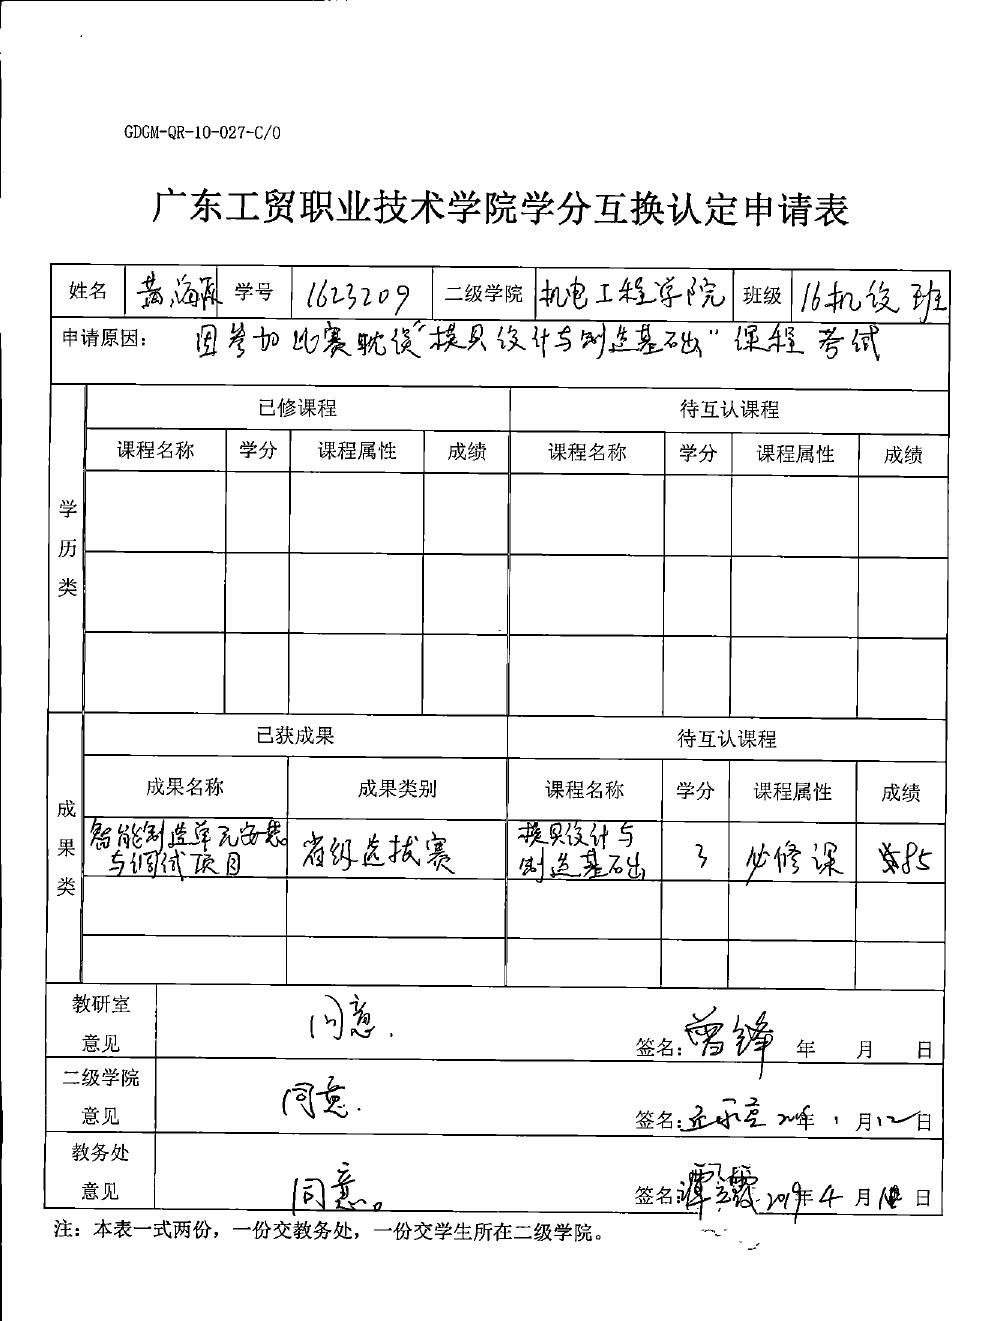 GDGM-QR-10-027-C/0
广东工贸职业技术学院学分互换认定申请表
姓名 黄海 学号 1623209 二级学院 机电工程学院 班级 16机设班
申请原因： 因参加比赛耽误“模具设计与制造基础”课程考试
已修课程 待互认课程
课程名称 学分 课程属性 成绩 课程名称 学分 课程属性 成绩
学历类
已获成果 待互认课程
成果名称 成果类别 课程名称 学分 课程属性 成绩
成果类
智能制造单元安装与调试项目 省级选拔赛 模具设计与制造基础 3 必修课 85
教研室意见 同意. 签名： 曾锋 年 月 日
二级学院意见 同意. 签名： 年 1 月 12 日
教务处意见 同意。 签名： 2019年 4 月 日
注：本表一式两份，一份交教务处，一份交学生所在二级学院。